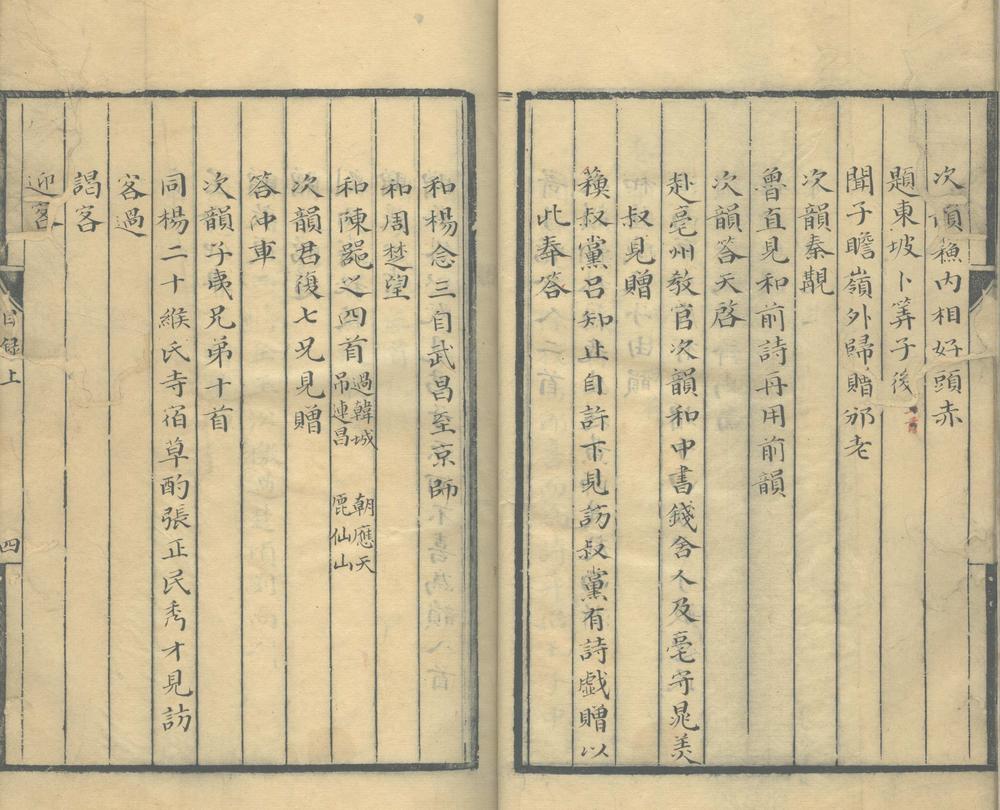 次韻穐內相好頭赤
題東坡卜筭子後
聞子瞻嶺外歸贈邠老
次韻秦覯
魯直見和前詩再用前韻
次韻答天啓
赴亳州教官次韻和中書錢舍人及亳守晁美
叔見贈
蘓叔黨呂知止自許下見訪叔黨有詩戲贈以
此奉答
和楊念三自武昌至京師
和周楚望
和陳器之四首 過韓城 吊連昌 朝應天 鹿仙山
次韻君復七兄見贈
答冲車
次韻子夷兄弟十首
同楊二十緱氏寺宿草酌張正民秀才見訪
客過
謁客
迎客
目録上
四